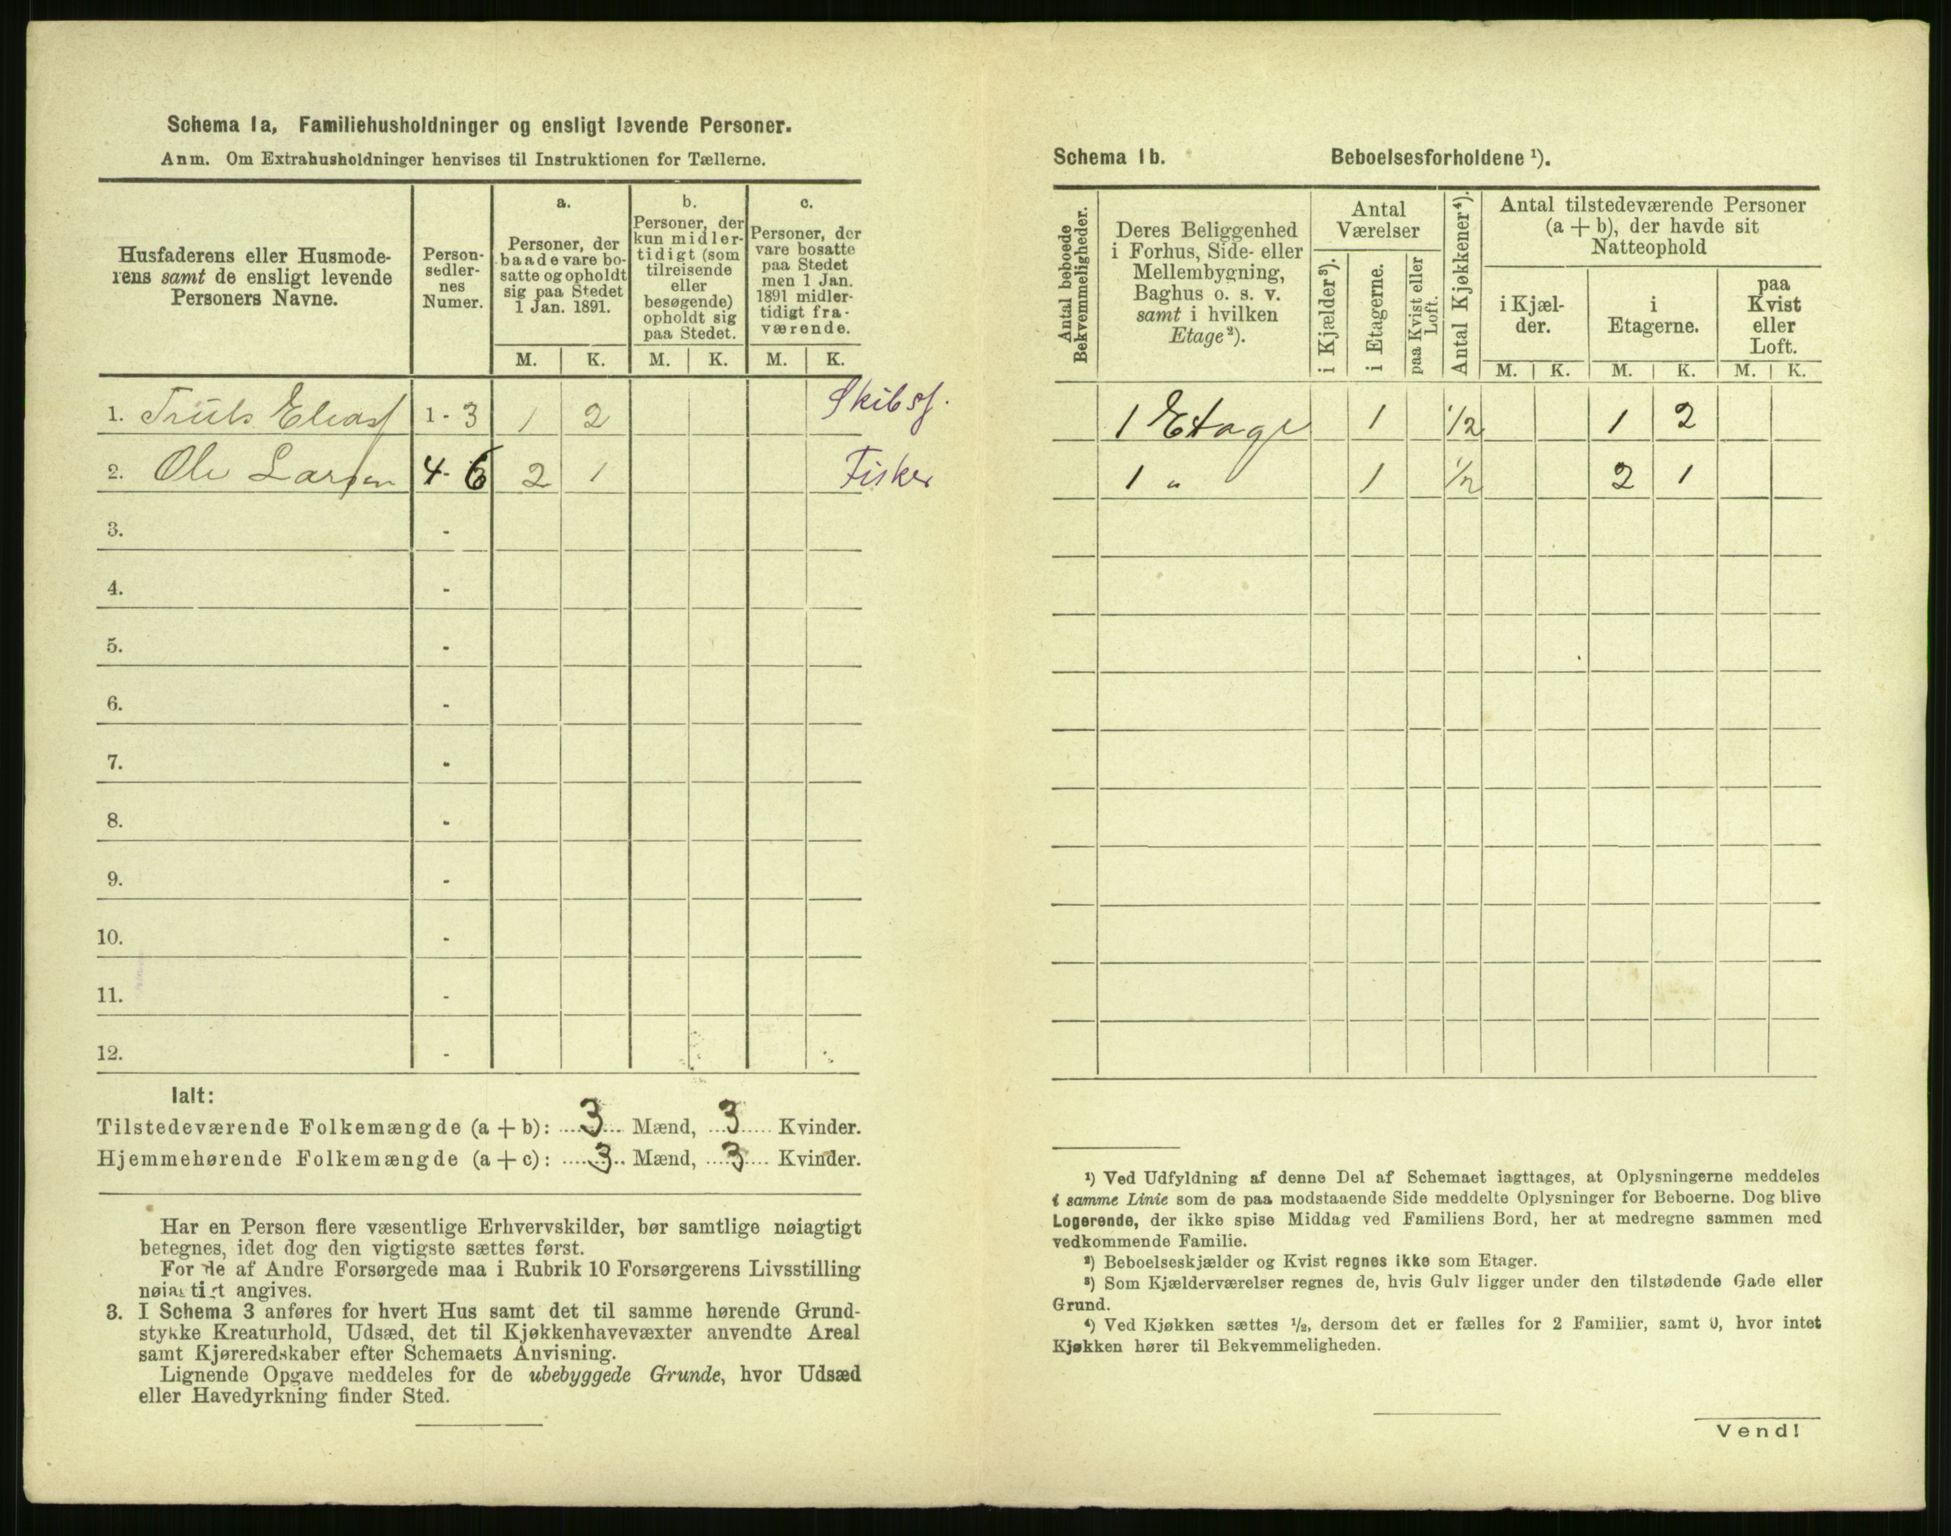 Schema 1a, Familiehusholdninger og ensligt levende Personer.
Anm. Om Extrahusholdninger henvises til Instruktionen for Tællerne.
Husfaderens eller Husmode-
rens samt de ensligt levende
Personers Navne.
Person-
sedler-
nes
Numer.
a.
Personer, der
baade vare bo-
satte og opholdt
sig paa Stedet
1 Jan. 1891.
b.
Personer, der
kun midler-
tidigt (som
tilreisende
eller
besøgende)
opholdt sig
paa Stedet.
c.
Personer, der
vare bosatte
paa Stedet
men 1 Jan.
1891 midler-
tidigt fra-
værende.
M. K. M. K. M. K.
1. Truls Eliass 1 - 3 1 2 Skibsf.
2. Ole Larsen 4 - 6 2 1 Fisker
3. -
4. -
5. -
6. -
7. -
8. -
9. -
10. -
11. -
12. -
Ialt:
Tilstedeværende Folkemængde (a + b): 3 Mænd, 3 Kvinder.
Hjemmehørende Folkemængde (a + c): 3 Mænd, 3 Kvinder.
Har en Person flere væsentlige Erhvervskilder, bør samtlige nøiagtigt
betegnes, idet dog den vigtigste sættes først.
For de af Andre Forsørgede maa i Rubrik 10 Forsørgerens Livsstilling
nøiagtigt angives.
3. I Schema 3 anføres for hvert Hus samt det til samme hørende Grund-
stykke Kreaturhold, Udsæd, det til Kjøkkenhavevæxter anvendte Areal
samt Kjøreredskaber efter Schemaets Anvisning.
Lignende Opgave meddeles for de ubebyggede Grunde, hvor Udsæd
eller Havedyrkning finder Sted.
Schema 1b. Beboelsesforholdene ¹).
Antal beboede
Bekvemmeligheder.
Deres Beliggenhed
i Forhus, Side- eller
Mellembygning,
Baghus o. s. v.
samt i hvilken
Etage²).
Antal
Værelser
i Kjælder³).
i Etagerne.
paa Kvist eller
Loft.
Antal Kjøkkener⁴).
Antal tilstedeværende Personer
(a + b), der havde sit
Natteophold
i Kjæl-
der.
i
Etagerne.
paa
Kvist
eller
Loft.
M. K. M. K. M. K.
1 Etage 1 1/2 1 2
1 " 1 1/2 2 1
¹) Ved Udfyldning af denne Del af Schemaet iagttages, at Oplysningerne meddeles
i samme Linie som de paa modstaaende Side meddelte Oplysninger for Beboerne. Dog blive
Logerende, der ikke spise Middag ved Familiens Bord, her at medregne sammen med
vedkommende Familie.
²) Beboelseskjælder og Kvist regnes ikke som Etager.
³) Som Kjælderværelser regnes de, hvis Gulv ligger under den tilstødende Gade eller
Grund.
⁴) Ved Kjøkken sættes ½, dersom det er fælles for 2 Familier, samt 0, hvor intet
Kjøkken hører til Bekvemmeligheden.
Vend!